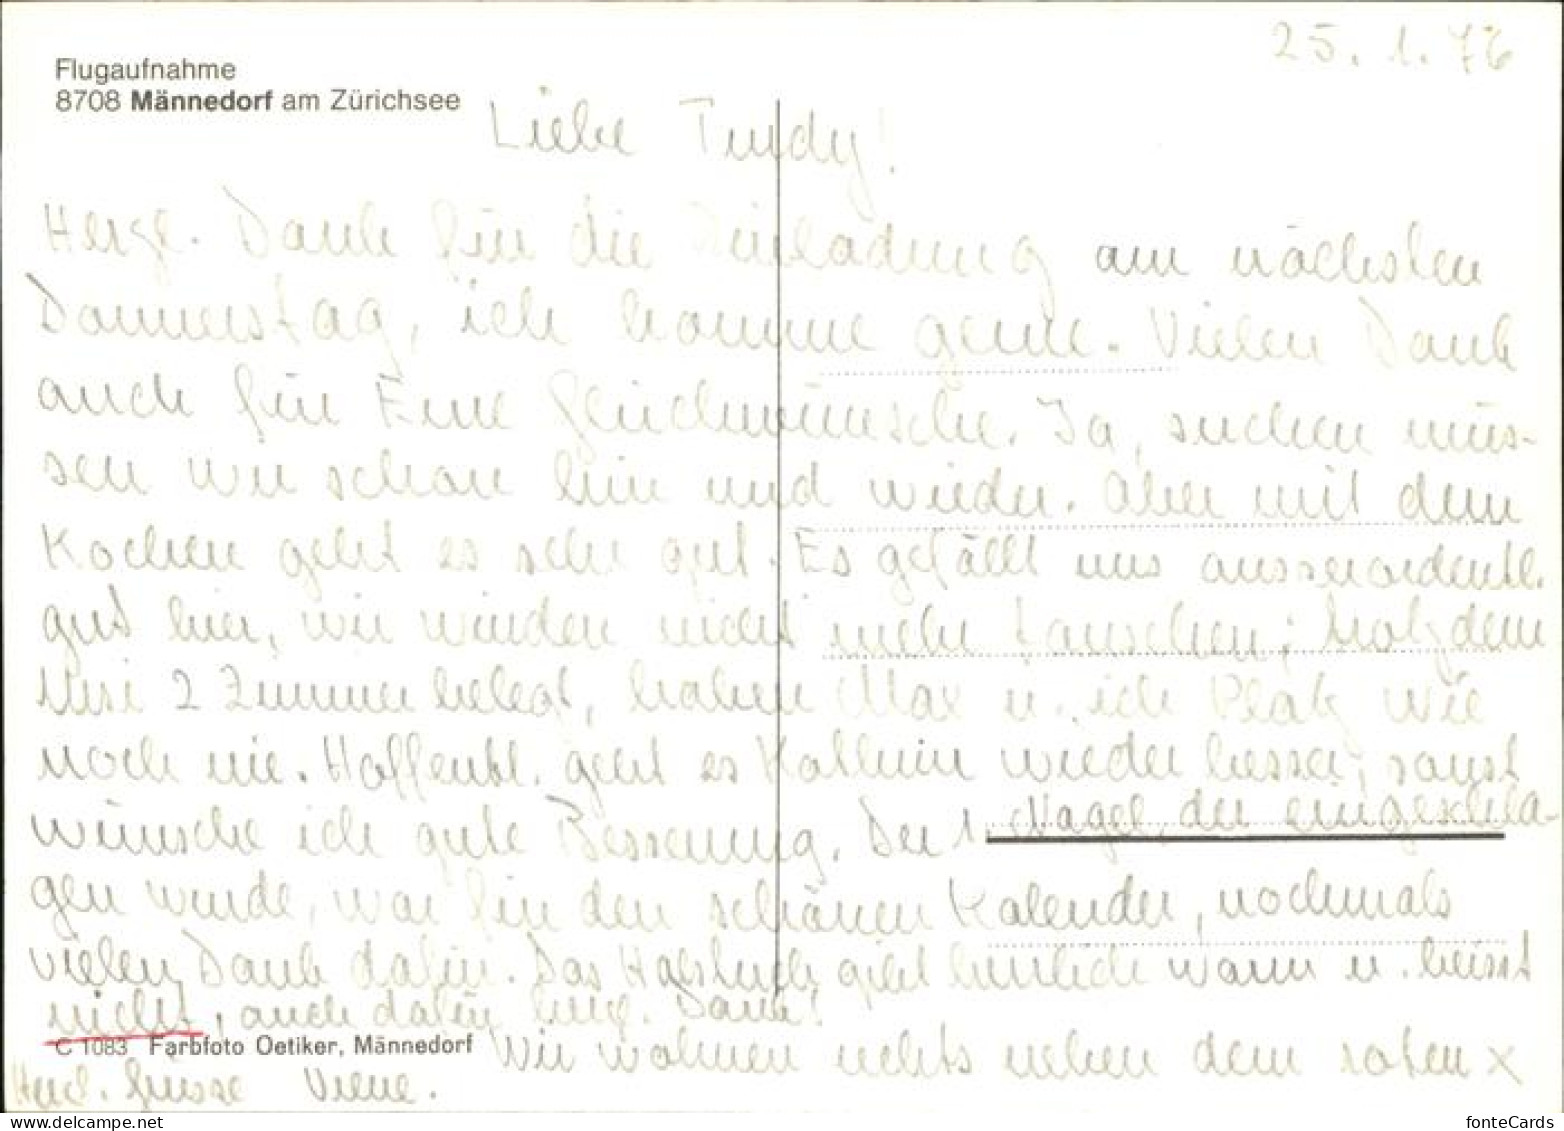 25. 1. 76
Flugaufnahme
8708 Männedorf am Zürichsee
Liebe Trudy!
Herzl. Dank für die Einladung am nächsten
Donnerstag, ich komme gerne. Vielen Dank
auch für Eure Glückwünsche. Ja, suchen müs-
sen wir schon hin und wieder. Aber mit dem
Kochen geht es sehr gut. Es gefällt uns ausserordentl.
gut hier, wir würden nicht mehr tauschen; trotzdem
2 Zimmer belegt, haben Max u. ich Platz wie
noch nie. Hoffentl. geht es Kathrin wieder besser, sonst
wünsche ich gute Besserung. Der 1. Nagel, der eingeschla-
gen wurde, war für den schönen Kalender, nochmals
vielen Dank dafür. Das Halstuch gibt herrlich warm u. beisst
nicht, auch dafür herzl. Dank!
C 1083 Farbfoto Oetiker, Männedorf
Wir wohnen rechts neben dem roten x
Herzl. Grüsse
fonteCards
www.delcampe.net